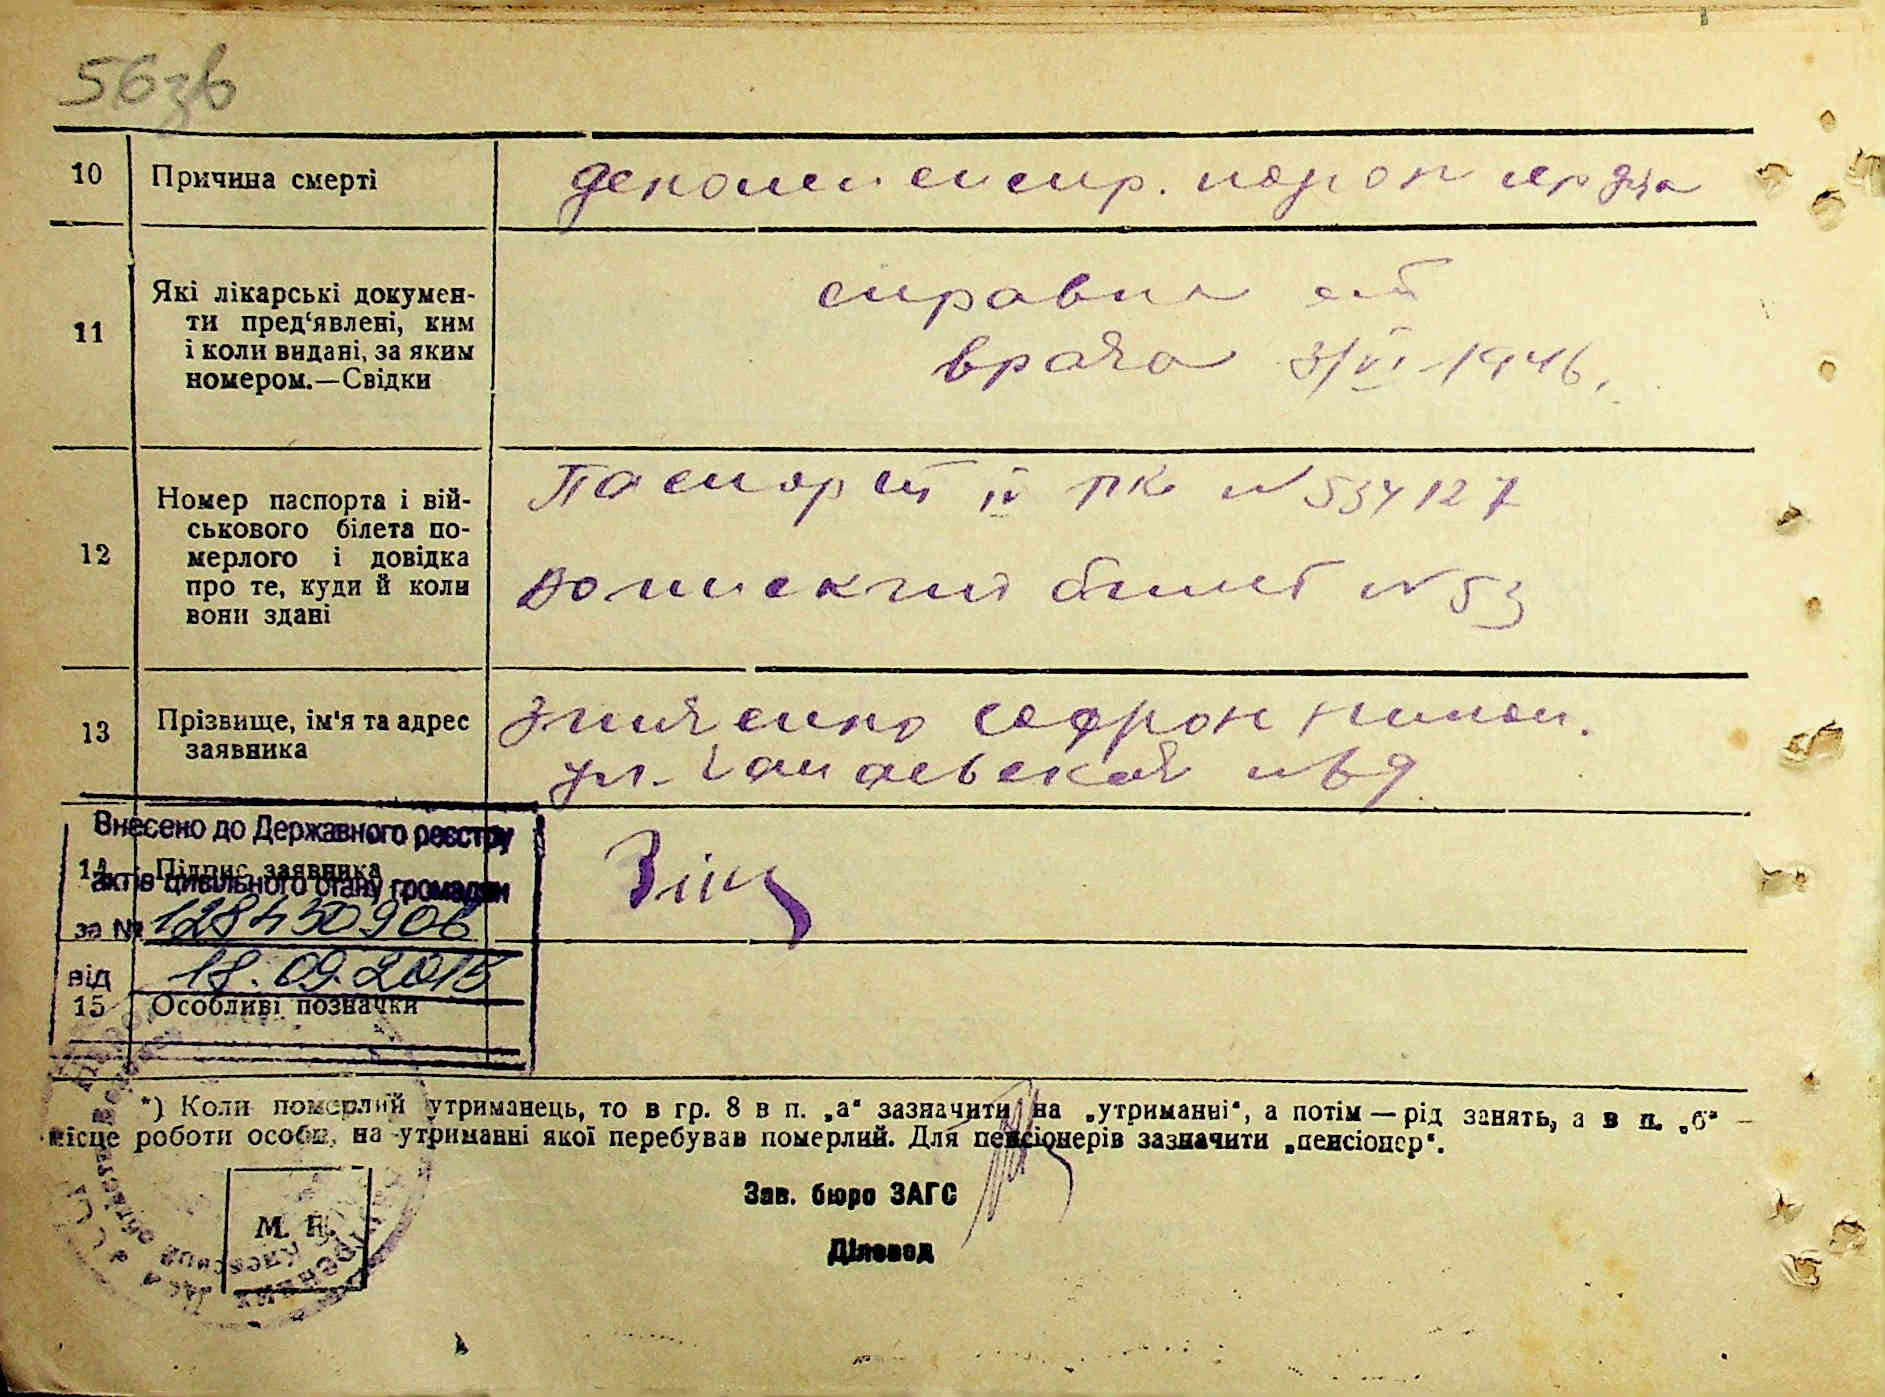 56зв
10 Причина смерті
декомпенсир. порок сердца
11 Які лікарські докумен-
ти пред‘явлені, ким
і коли видані, за яким
номером.—Свідки
справка от
врача 3/VI-1946.
12 Номер паспорта і вій-
ськового білета по-
мерлого і довідка
про те, куди й коли
вони здані
Паспорт IV ПК №534127
воинский билет №53
13 Прізвище, ім'я та адрес
заявника
Софрон
ул. Чапаевская №9
Внесено до Державного реєстру
14 Підпис заявника
актів цивільного стану громадян
за № 128450906
від 18.09.2018
15 Особливі позначки
*) Коли померлий утриманець, то в гр. 8 в п. „а“ зазначити на „утриманні“, а потім — рід занять, а в п. „б“ —
місце роботи особи, на утриманні якої перебував померлий. Для пенсіонерів зазначити „пенсіонер“.
Зав. бюро ЗАГС
Діловод
М. П.